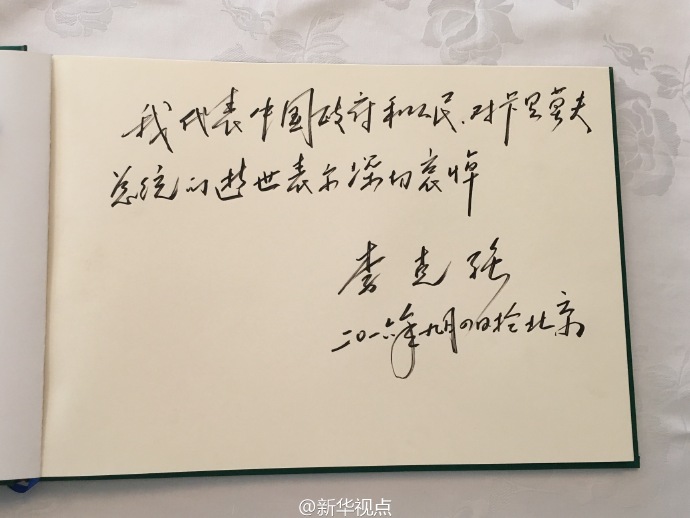 我代表中国政府和人民、对卡里莫夫
总统的逝世表示深切哀悼
李克强
二〇一六年九月四日于北京
@新华视点